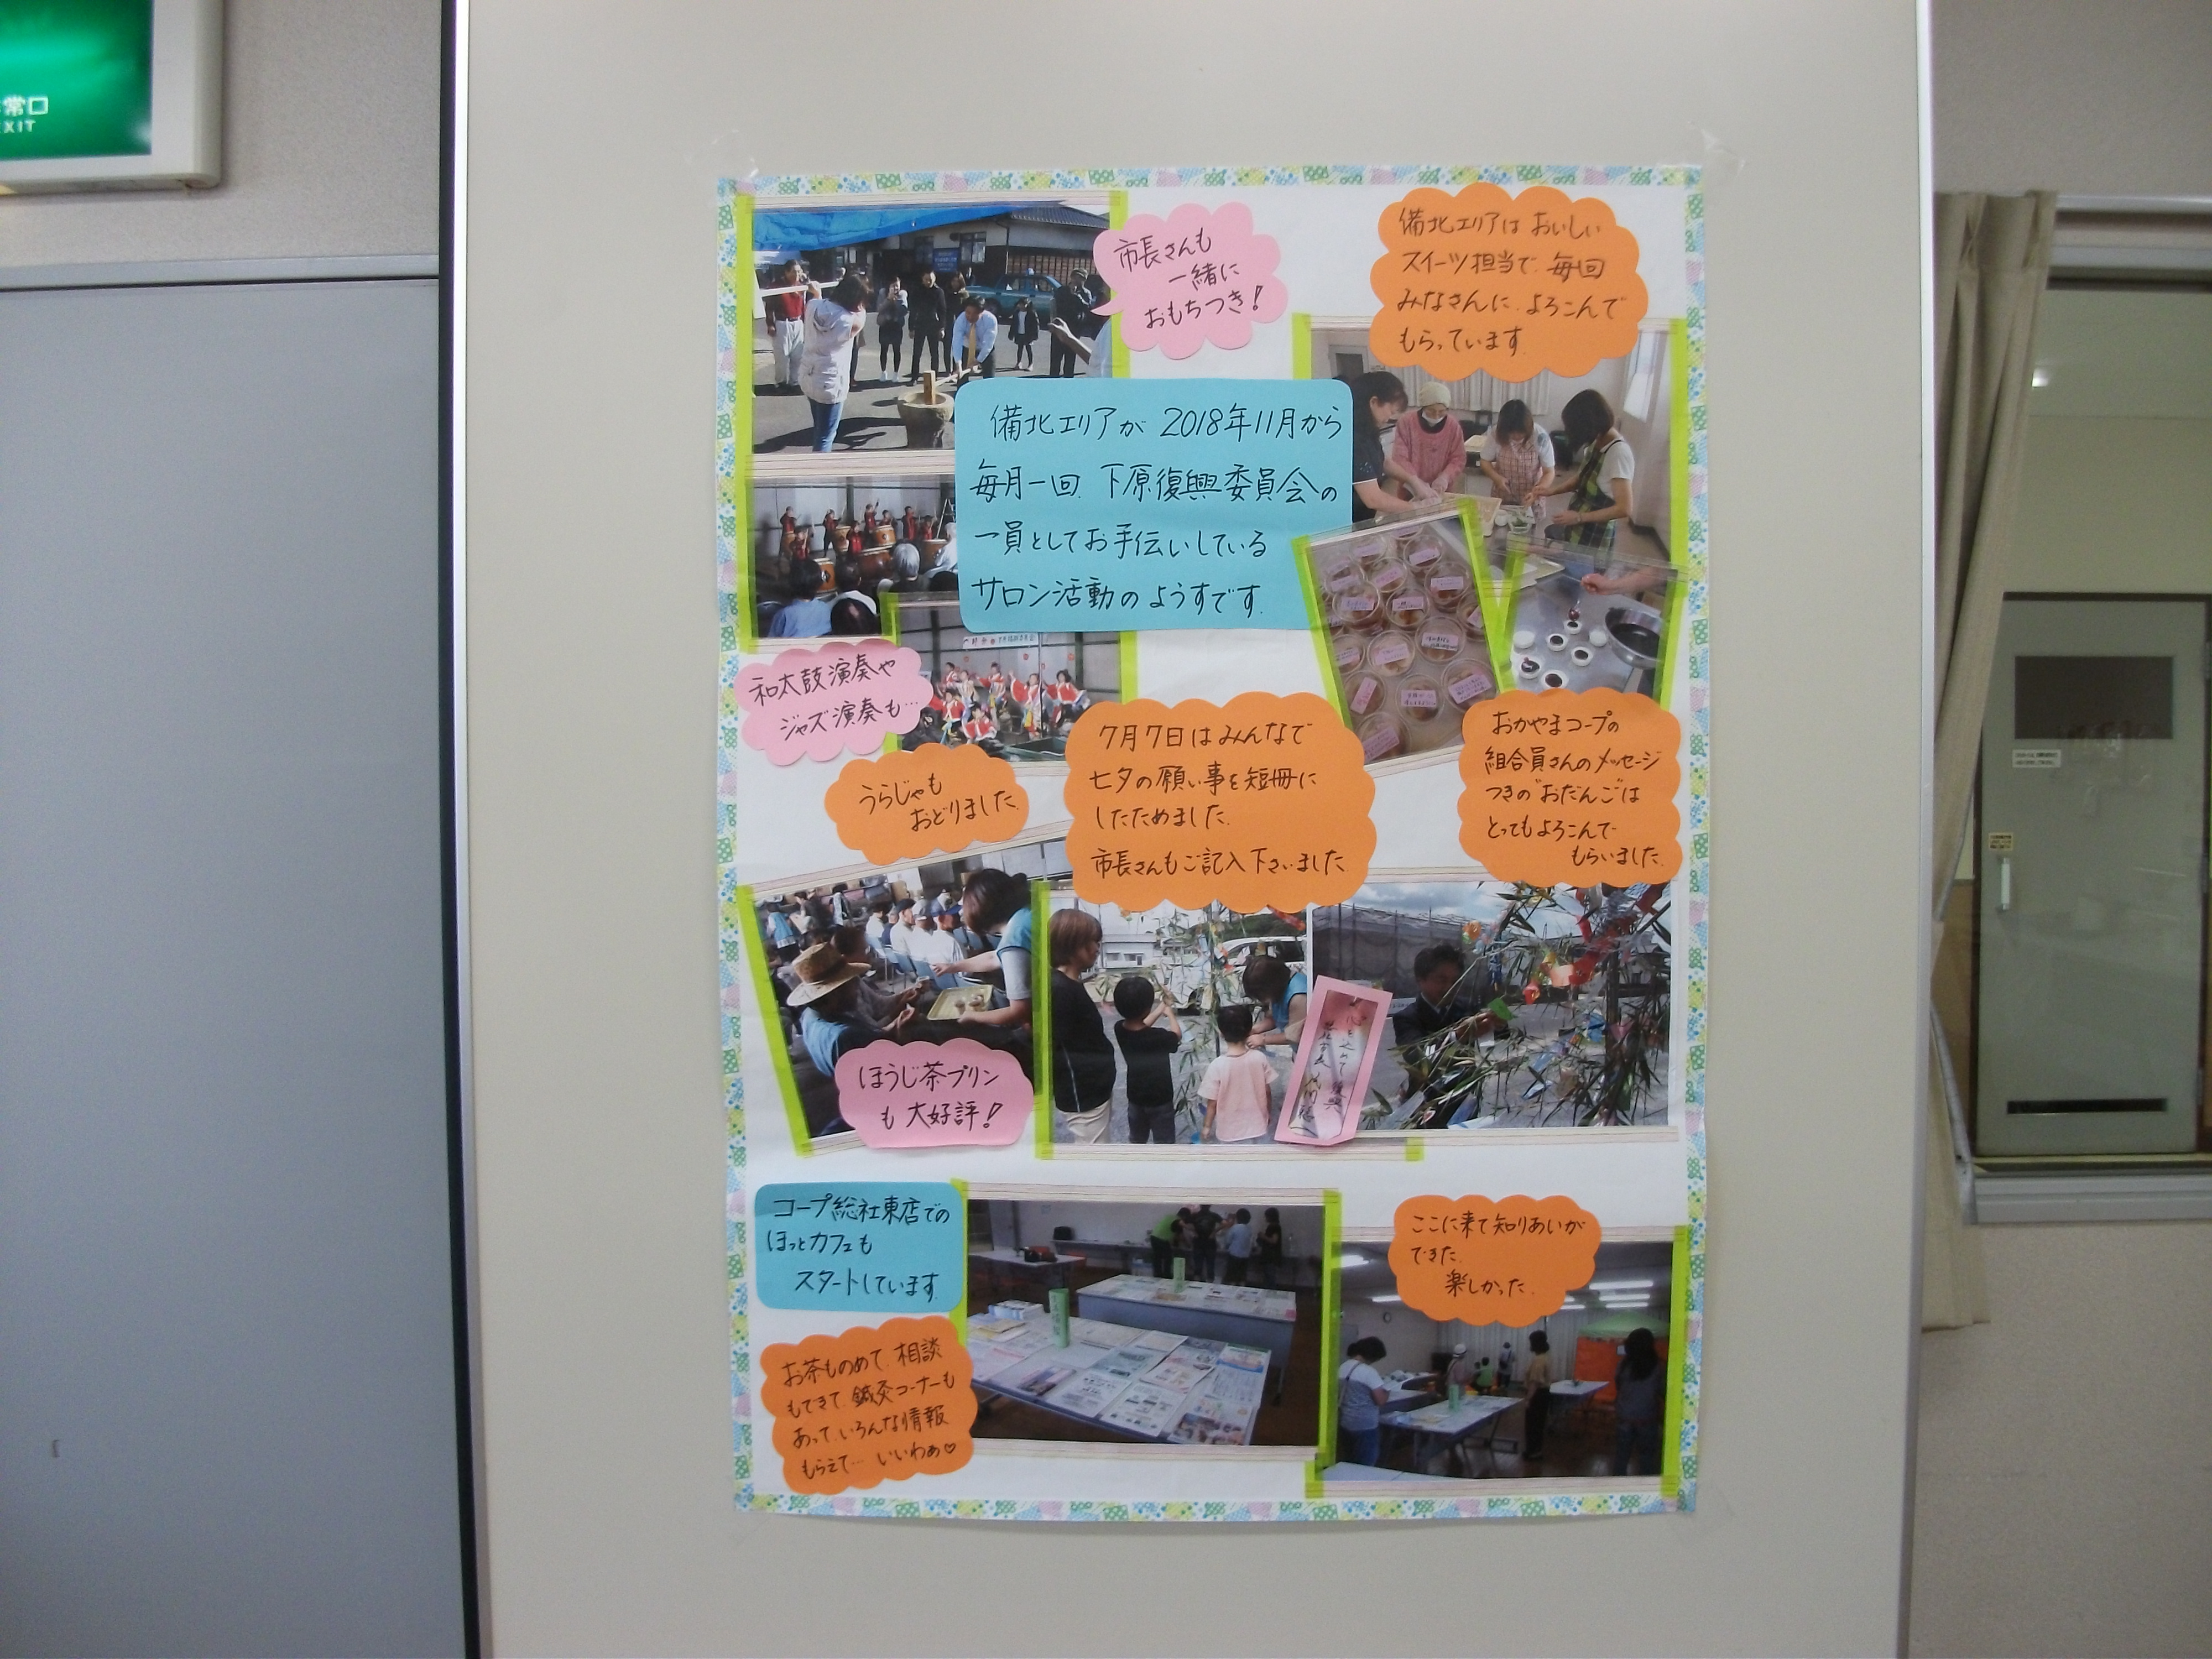 常口
EXIT
市長さんも
一緒に
おもちつき!
備北エリアは おいしい
スイーツ担当で 毎回
みなさんに よろこんで
もらっています
備北エリアが 2018年11月から
毎月一回 下原復興委員会の
一員としてお手伝いしている
サロン活動のようすです.
和太鼓演奏や
ジャズ演奏も…
うらじゃも
おどりました
7月7日はみんなで
七夕の願い事を短冊に
したためました.
市長さんもご記入下さいました
おかやまコープの
組合員さんのメッセージ
つきの"おだんご"は
とってもよろこんで
もらいました.
ほうじ茶プリン
も大好評!
心を込めて 復興
コープ総社東店での
ほっとカフェも
スタートしています
ここに来て知りあいが
できた.
楽しかった.
お茶ものめて 相談
もできて 鍼灸コーナーも
あって いろんな情報
もらえて… いいわぁ♡